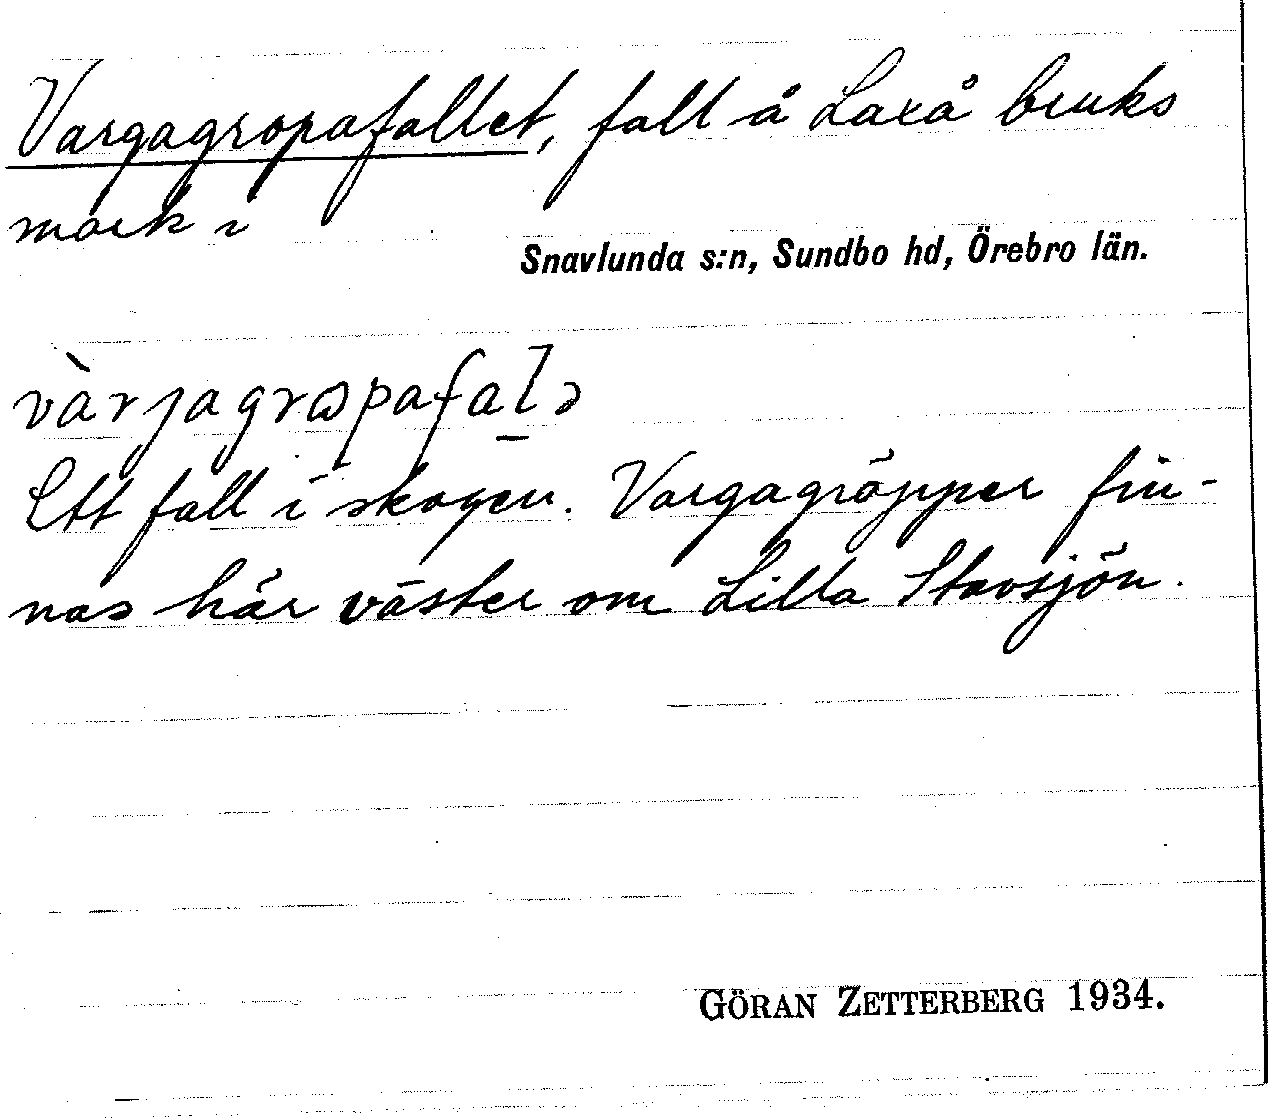 Vargagropafallet, fall å Laxå bruks
mark i
Snavlunda s:n, Sundbo hd, Örebro län.
vàrjagrɷpafal̠ə
Ett fall i skogen. Vargagröpper fin-
nas här väster om Lilla Stavsjön.
GÖRAN ZETTERBERG 1934.